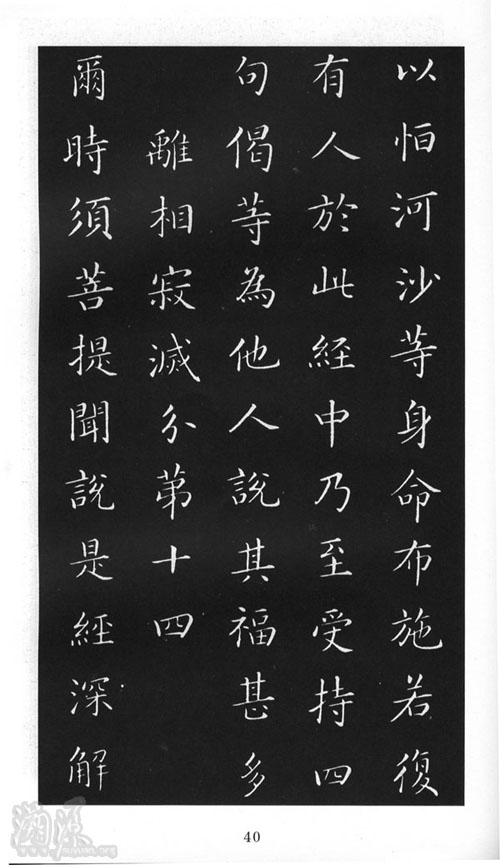 以恒河沙等身命布施若復
有人於此經中乃至受持四
句偈等為他人說其福甚多
離相寂滅分第十四
爾時須菩提聞說是經深解
40